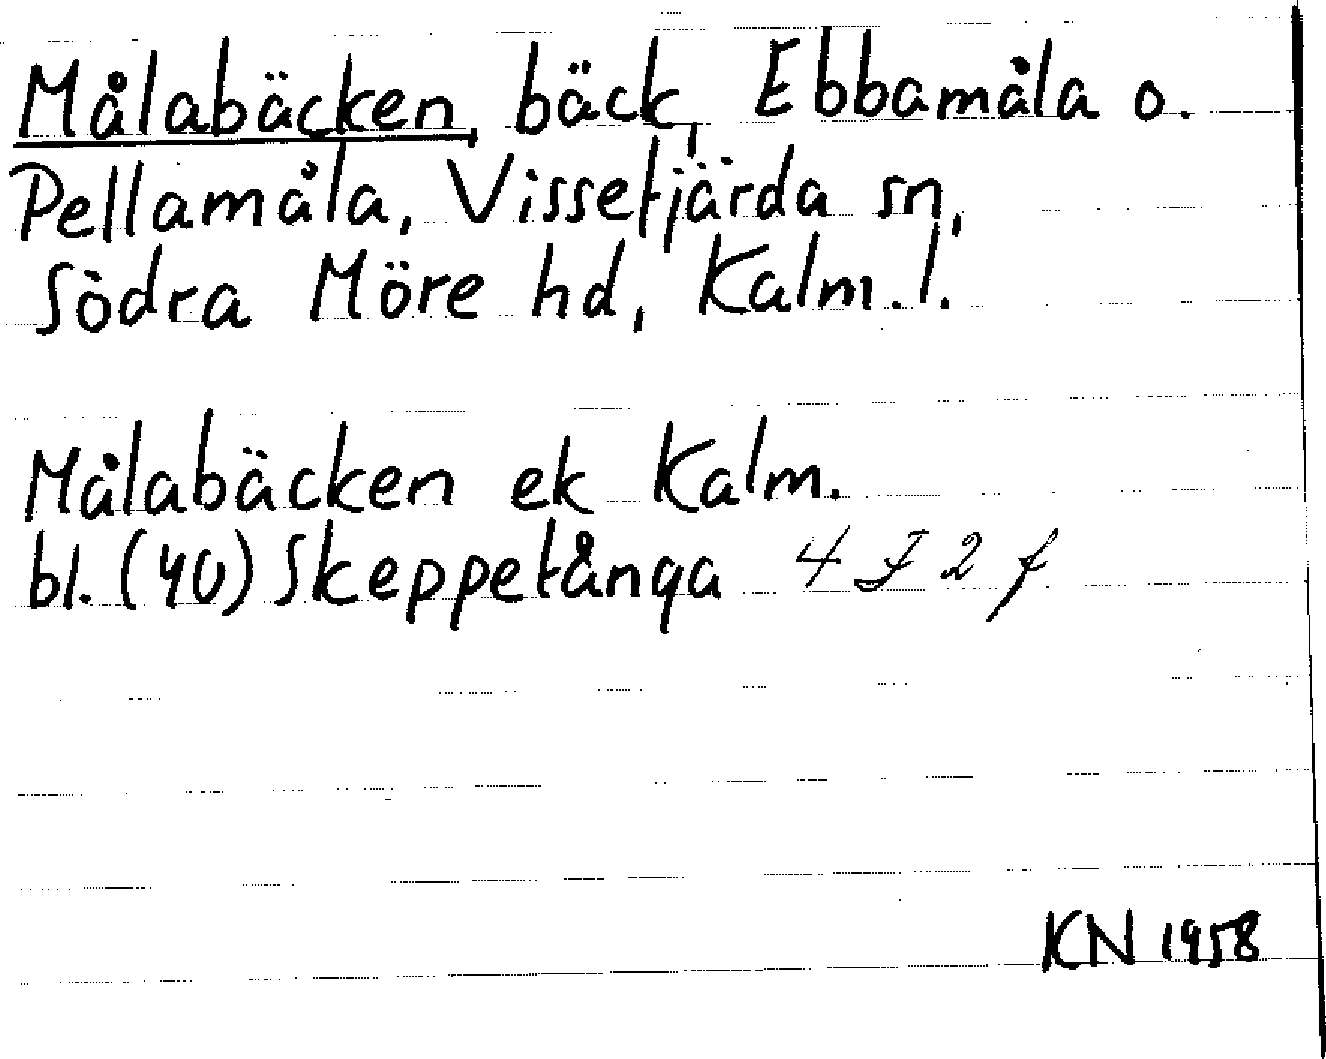 Målabäcken, bäck, Ebbamåla o.
Pellamåla, Vissefjärda sn,
Södra Möre hd, Kalm. l.
Målabäcken ek Kalm.
bl. (40) Skeppetånga 4 F 2 f
KN 1958